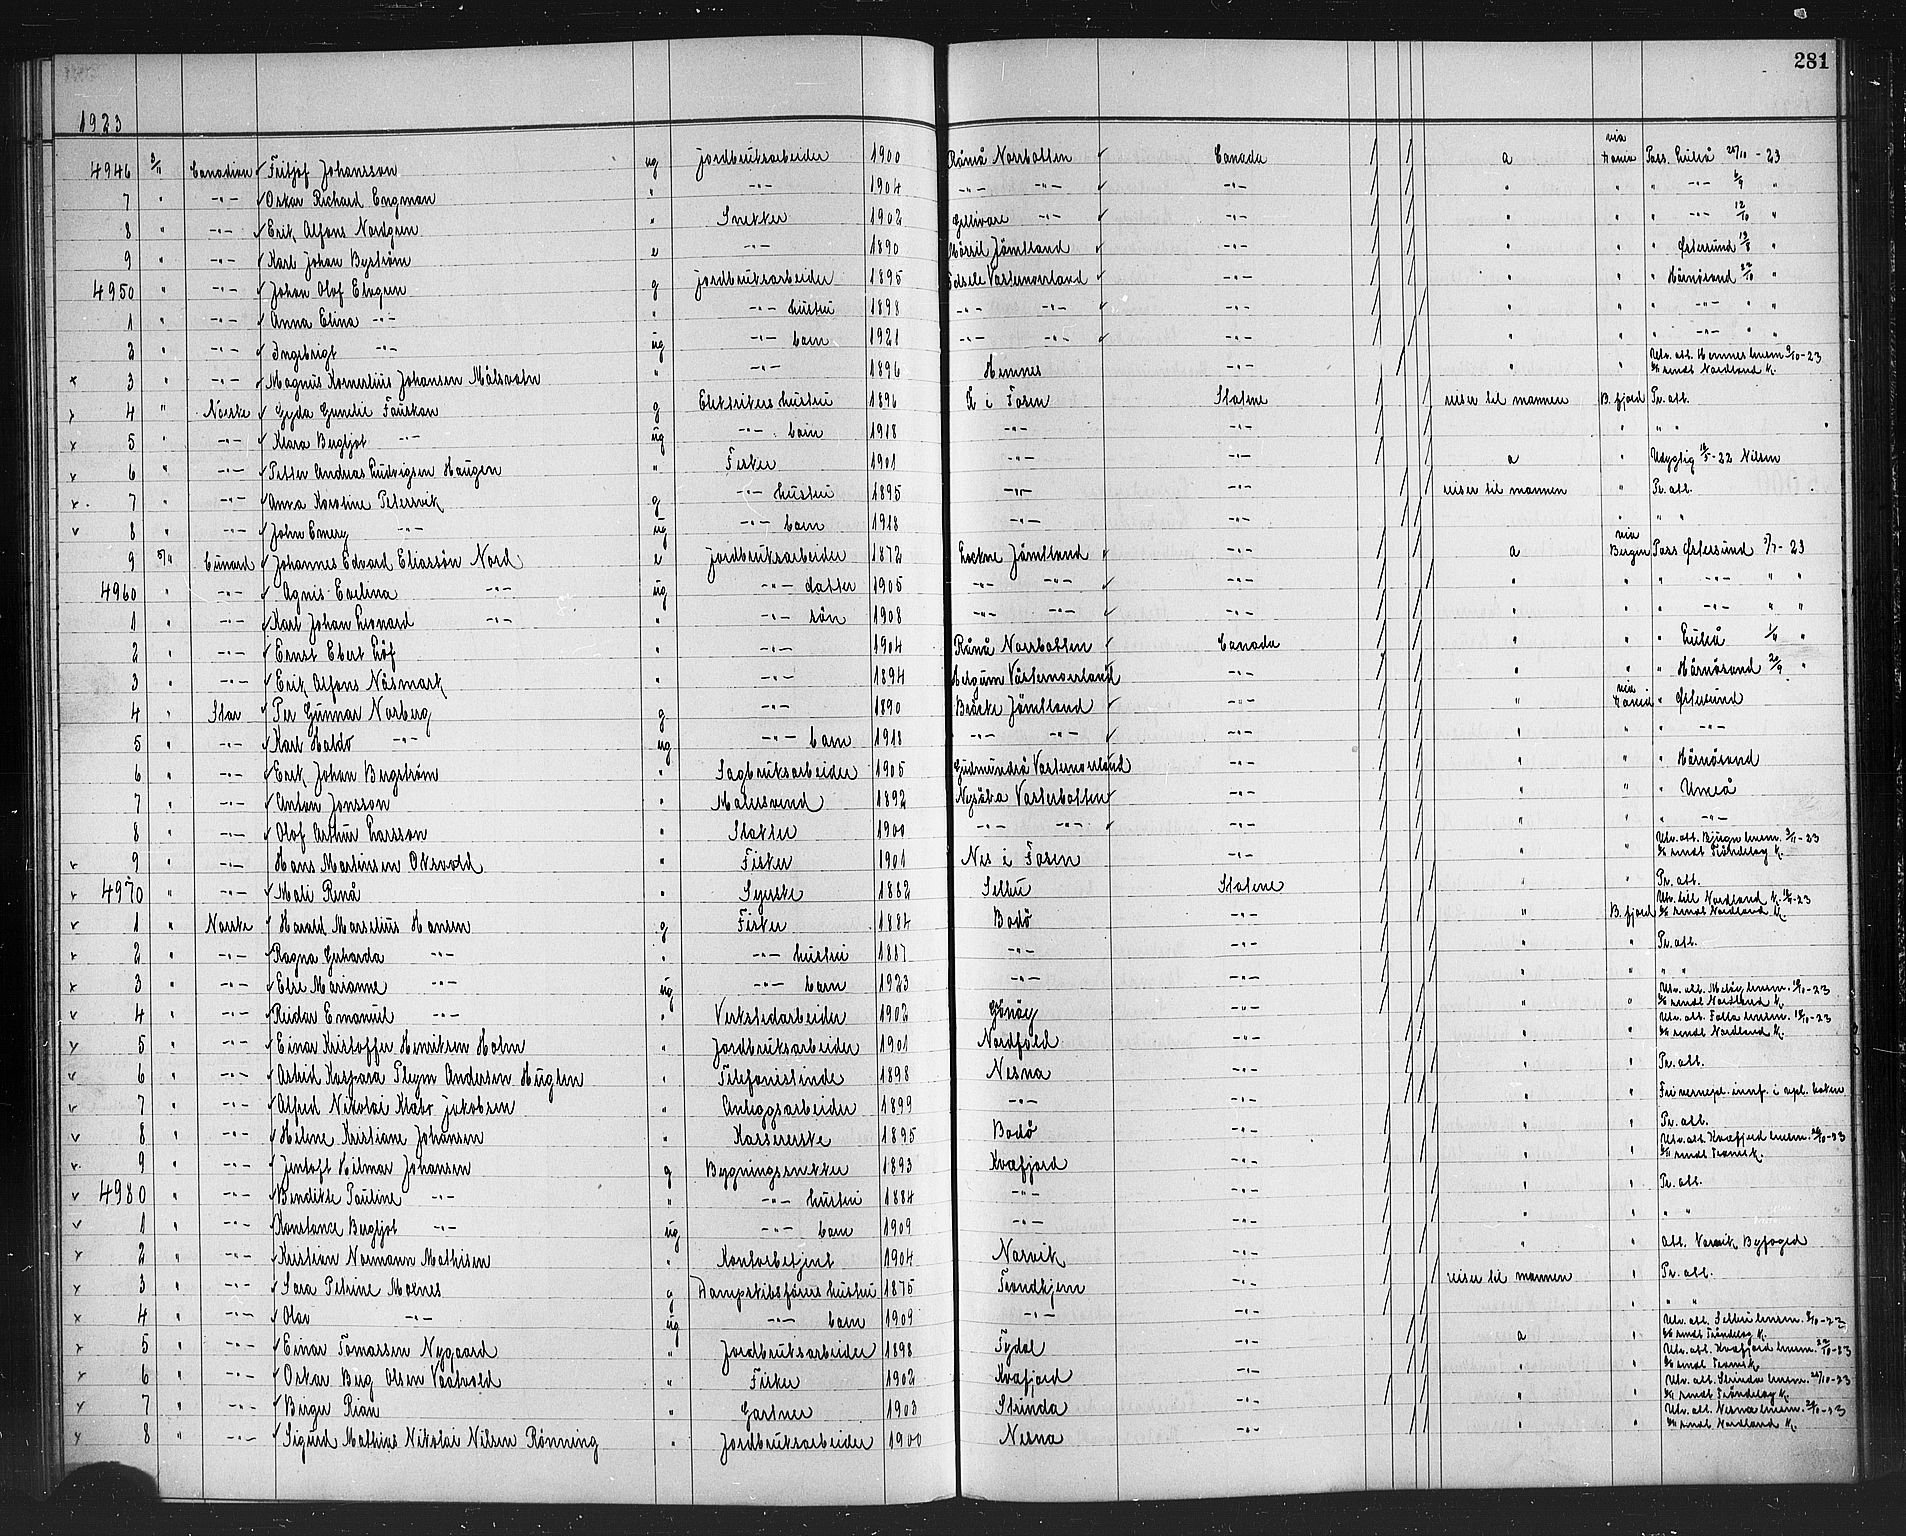 281
1923
4946 3/11 Canadian Fritjof Johansson ug jordbruksarbeider 1900 Råneå Norrbotten Canada a via Hania Pass. Luleå 26/10 - 23
7 " -"- Oskar Richard Engman " -"- 1904 -"- -"- -"- " " " -"- 6/9 "
8 " -"- Erik Alfons Nordgren " Snekker 1902 Gellivare -"- -"- " " " -"- 12/10 "
9 " -"- Karl Johan Byström e -"- 1890 Mörsil Jämtland -"- " " " Østersund 13/8 "
4950 " -"- Johan Olof Elvgren g jordbruksarbeider 1895 Vesternorrland -"- " " " Härnösand 22/10 "
1 " -"- Anna Elina -"- " -"- hustru 1898 -"- -"- -"- " " " -"- " "
2 " -"- Ingebrigt -"- ug -"- barn 1921 -"- -"- -"- " " " -"- " "
3 " -"- Magnus Kornelius Johansen Målsvatn " -"- 1896 Hemnes -"- " " Utv. att. Hemnes lensm. 9/10-23
sendt Nordland K.
4 " Norske Gyda Gunelie Fauskan g Elektrikers hustru 1896 Å i Fosen Statene reiser til mannen B.fjord Pr. att.
5 " -"- Klara Bergljot -"- ug -"- barn 1918 -"- -"- " " "
6 " -"- Petter Andreas Ludvigsen Haugen " Fisker 1901 -"- -"- a " Udygtig 18/5-22 Nilsen
7 " -"- Anna Karoline Petersvik g -"- hustru 1895 -"- -"- reiser til mannen " Pr. att.
8 " -"- John Emery -"- ug -"- barn 1918 -"- -"- " " "
9 5/11 Cunard Johannes Edvard Eliassön Nord e jordbruksarbeider 1872 Lockne Jämtland -"- a via Bergen Pass Østersund 7/7 - 23
4960 " -"- Agnis Evelina -"- ug -"- datter 1905 -"- -"- -"- " " " -"- " "
1 " -"- Karl Johan Leonard -"- " -"- sön 1908 -"- -"- -"- " " " -"- " "
2 " -"- Ernst Ebert Löf " -"- 1904 Råneå Norrbotten Canada " " " Luleå "
3 " -"- Erik Alfons Näsmark " -"- 1894 Västernorrland -"- " " " Härnösand 20/9 "
4 " Star Per Gunnar Norberg g -"- 1890 Bräcke Jämtland -"- " via Hania " Østersund
5 " -"- Karl Haldo -"- ug -"- barn 1918 -"- -"- -"- " " " -"-
6 " -"- Erik Johan Bergström " Sagbruksarbeider 1905 Gudmundrå Vesternorrland -"- " " " Härnösand
7 " -"- Anton Jonsson " Malersvend 1892 Nysätra Vesterbotten -"- " " " Umeå
8 " -"- Olof Arthur Larsson " Slakter 1900 -"- -"- -"- " " " -"-
9 " -"- Hans Martinsen Oksvold " Fisker 1901 Nes i Fosen -"- " " Utv. att. Bjugn lensm. 3/11-23
sendt Tröndelag K.
4970 " -"- Mali Renå " Syerske 1882 Selbu Statene " " Pr. att.
1 " Norske Harald Marselius Hansen g Fisker 1884 Bodö -"- " B.fjord Utv. till Nordland K. -23
sendt Nordland K.
2 " -"- Ragna Gerharda -"- " -"- hustru 1887 -"- -"- " " Pr. att.
3 " -"- Else Marianne -"- ug -"- barn 1923 -"- -"- " " " "
4 " -"- Reidar Emanuel -"- " Verkstedarbeider 1902 Gönöy -"- " " Utv. att. Melöy lensm. 10/10-23
sendt Nordland K.
5 " -"- Einar Kristoffer Henriksen Holm " Jordbruksarbeider 1901 Nordfold -"- " " Utv. att. Folla lensm. 18/10-23
sendt Nordland K.
6 " -"- Astrid Kaspara Pleym Andersen Huglen " Telefonistinde 1898 Nesna -"- " " Pr. att.
7 " -"- Alfred Nikolai Klabo Jakobsen " Anleggsarbeider 1899 -"- -"- " " Fri vernepl. innf. i
8 " -"- Helene Kristiane Johansen " Kassererske 1895 Bodö -"- " " Pr. att.
9 " -"- Jentoft Hilmar Johansen g Bygningssnekker 1893 Kvæfjord -"- " " Utv. att. Kvæfjord lensm. 20/10-23
sendt Troms K.
4980 " -"- Bendikte Pauline -"- " -"- hustru 1884 -"- -"- " " Pr. att.
1 " -"- Konstance Bergljot -"- ug -"- barn 1909 -"- -"- " " " "
2 " -"- Kristian Normann Mathisen " Kontorbetjent 1904 Narvik -"- " " att. Narvik Byfoged
3 " -"- Sara Petrine Moenes g Dampskibsförers hustru 1875 Trondhjem -"- reiser til mannen " Pr. att.
4 " -"- Olav -"- ug -"- barn 1909 -"- -"- " " "
5 " -"- Einar Tomassen Nygaard " Jordbruksarbeider 1898 Tydal -"- a " Utv. att. Selbu lensm. 9/10-23
sendt Tröndelag K.
6 " -"- Oskar Berg Olsen Vaatvold " Fisker 1902 Kvæfjord -"- " " Utv. att. Kvæfjord lensm. 22/10-23
sendt Troms K.
7 " -"- Birger Rian " Gartner 1903 Strinda -"- " " Utv. att. Strinda lensm. 26/10-23
sendt Tröndelag K.
8 " -"- Sigurd Mathias Nikolai Nilsen Rönning " Jordbruksarbeider 1900 Nesna -"- " " Utv. att. Nesna lensm. 24/10-23
sendt Nordland K.